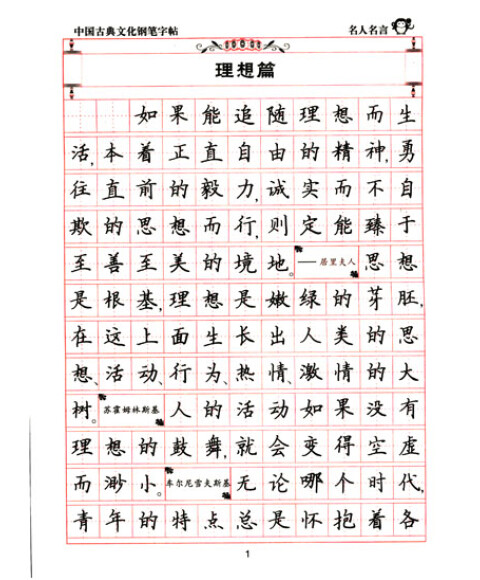 中国古典文化钢笔字帖 名人名言
理想篇
如果能追随理想而生
活,本着正直自由的精神,勇
往直前的毅力,诚实而不自
欺的思想而行,则定能臻于
至善至美的境地。——居里夫人 思想
是根基,理想是嫩绿的芽胚,
在这上面生长出人类的思
想、活动、行为、热情、激情的大
树。苏霍姆林斯基 人的活动如果没有
理想的鼓舞,就会变得空虚
而渺小。车尔尼雪夫斯基 无论哪个时代,
青年的特点总是怀抱着各
1